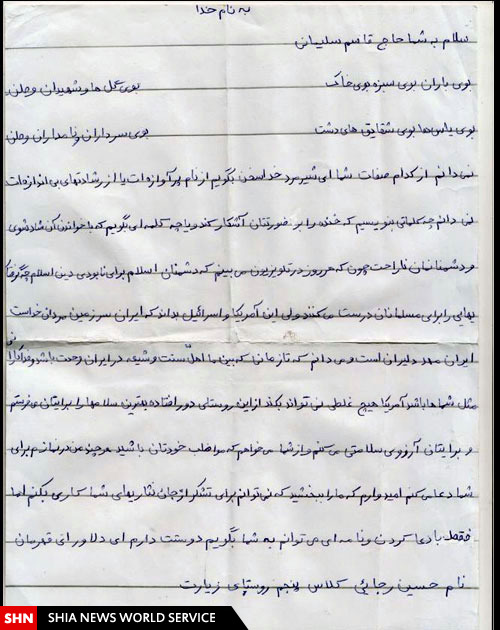 به نام خدا
سلام به شما حاج قاسم سلیمانی
بوی باران بوی سبزه بوی خاک بوی گل ها و شهیدان وطن
بوی یاس‌ها بوی شقایق های دشت بوی سرداران و نامداران وطن
نمی دانم از کدام صفات شما ای شیر مرد خدا سخن بگویم از نام پر آوازه ات یا از رشادتهای بی اندازه ات
نمی دانم چه کلماتی بنویسم که خنده را بر صورتتان آشکار کند و یا چه کلمه ای بگویم که با خواندن آن شاد شوی
و دشمنانمان ناراحت چون که هر روز در تلویزیون می بینم که دشمنان اسلام برای نابودی دین اسلام چه گرفتا
یهایی را برای مسلمانان درست می کنند ولی این آمریکا و اسرائیل بداند که ایران سرزمین مردان خداست
ایران مهد دلیران است و می دانم که تا زمانی که بین ما اهل سنت و شیعه در ایران وحدت باشد و فداکارانی
مثل شما ها باشد آمریکا هیچ غلطی نمی تواند بکند از این روستای دور افتاده بهترین سلامها را برایتان می فرستم
و برایتان آرزوی سلامتی می کنم و از شما می خواهم که مواظب خودتان باشید هر چند من در نمازم برای
شما دعا می کنم امیدوارم که ما را ببخشید که نمی توانم برای تشکر از جان نثاریهای شما کاری بکنم اما
فقط با دعا کردن و نامه ای می توانم به شما بگویم دوستت دارم ای دلاور ای قهرمان
نام حسین رجایی کلاس پنجم روستای زیارت
SHN SHIA NEWS WORLD SERVICE